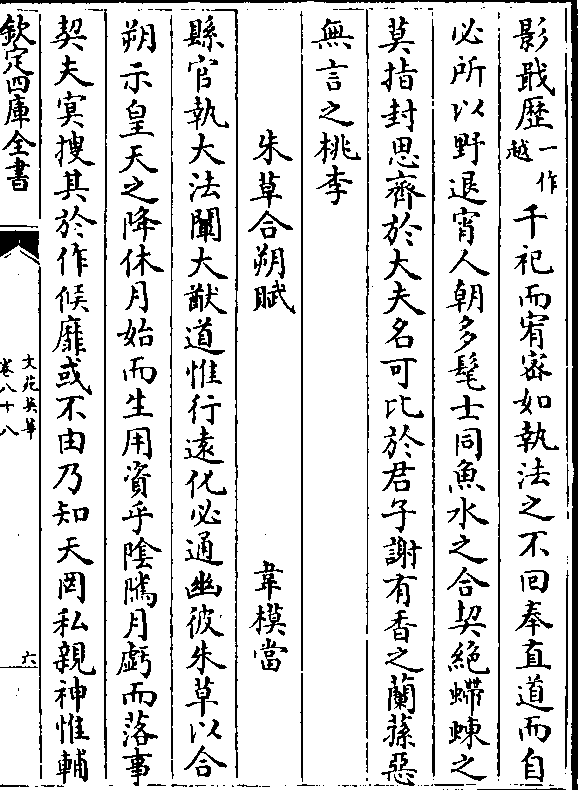 影戢歷一作越千祀而宥密如執法之不回奉直道而自
必所以野退宵人朝多髦士同魚水之合契絶蝃蝀之
莫指封思齊於大夫名可比於君子謝有香之蘭蓀惡
無言之桃李
朱草合朔賦　韋模當
縣官執大法闡大猷道惟行遠化必通幽彼朱草以合
朔示皇天之降休月始而生用資乎陰騭月虧而落事
契夫冥搜其於作候靡或不由乃知天罔私親神惟輔
欽定四庫全書
文苑英華
卷八十八
六